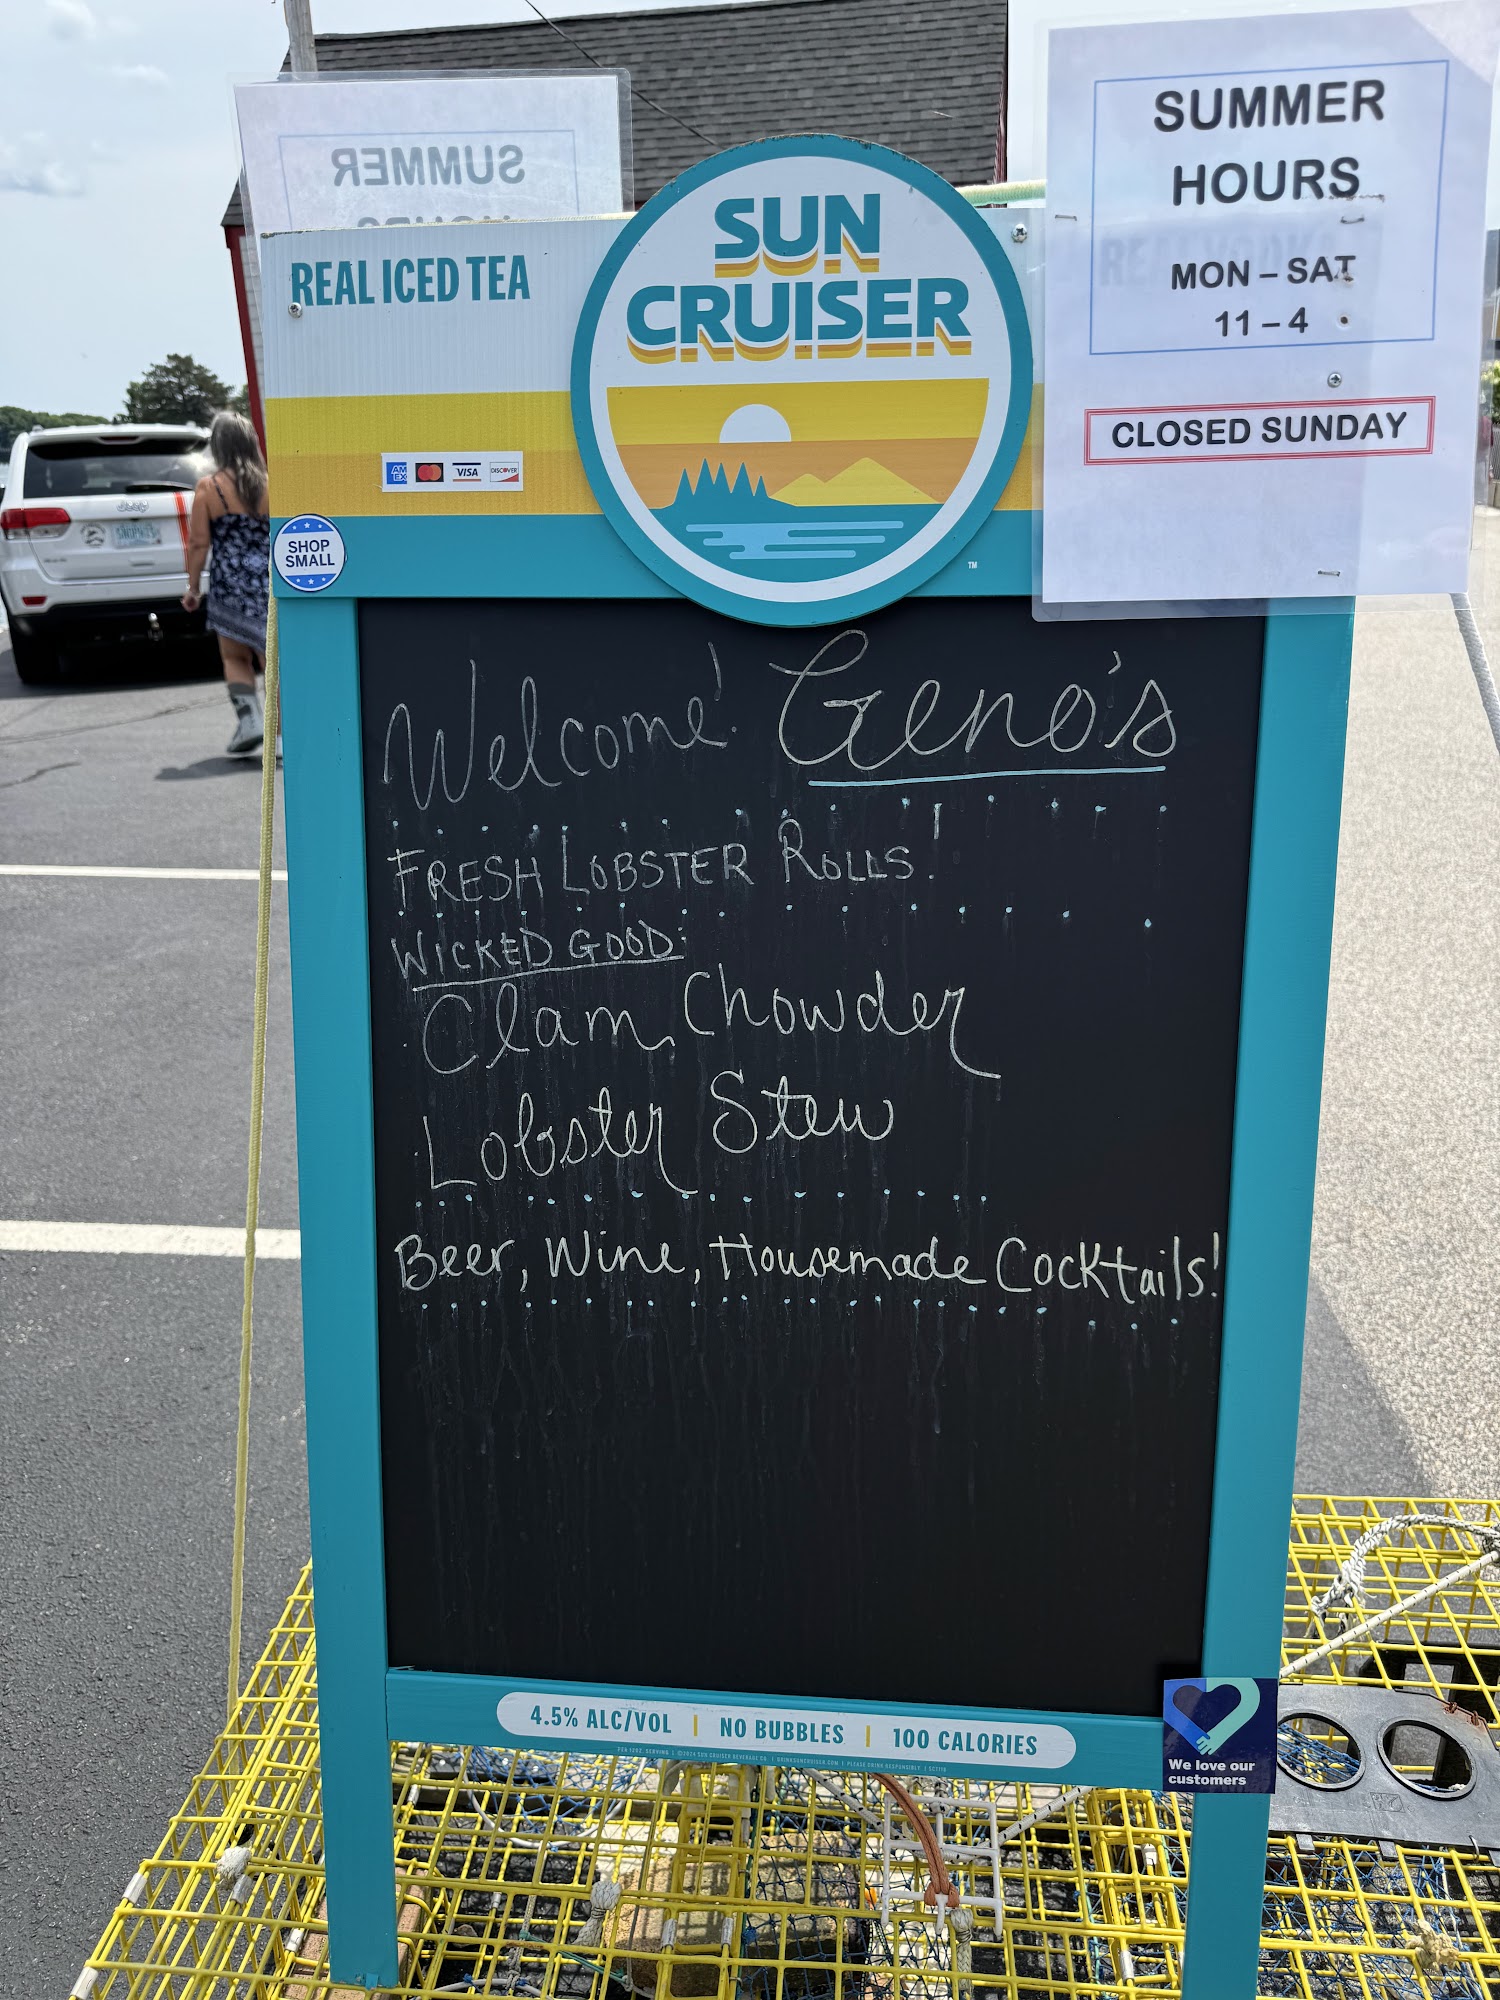 SUMMER
HOURS
MON – SAT
11 – 4
CLOSED SUNDAY
SUMMER
REAL ICED TEA
SUN
CRUISER
AM
EX
VISA
DISCOVER
SHOP
SMALL
TM
Jeep
Welcome! Geno's
FRESH LOBSTER ROLLS!
WICKED GOOD:
Clam Chowder
Lobster Stew
Beer, Wine, Housemade Cocktails!
4.5% ALC/VOL | NO BUBBLES | 100 CALORIES
We love our
customers